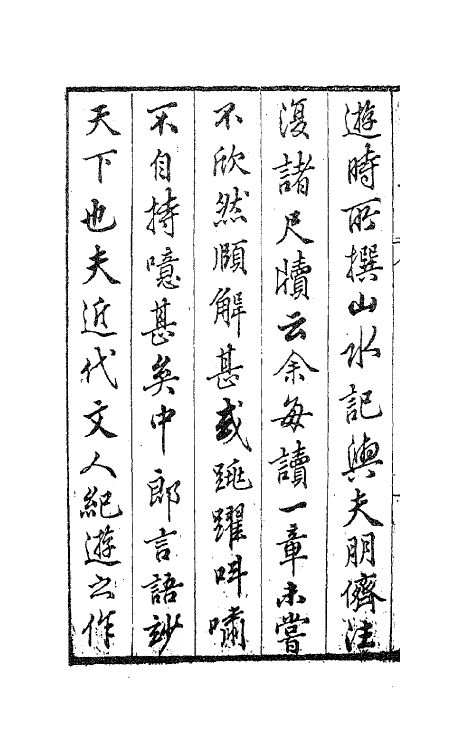 遊時所撰山水記與夫朋儕往
復諸尺牘云余每讀一章未嘗
不欣然頤解甚或跳躍叫嘯
不自持噫甚矣中郎言語玅
天下也夫近代文人紀遊之作